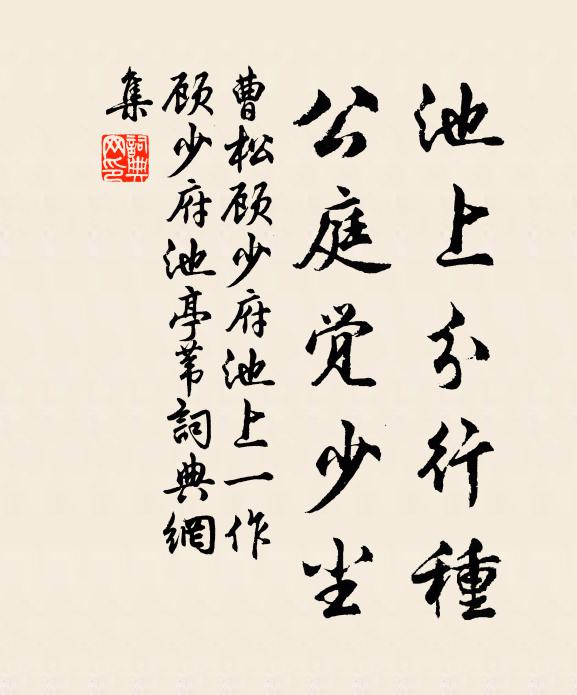 池上分行種
公庭觉少尘
曹松顾少府池上一作
顾少府池亭苇詞典網
集
詞典網印